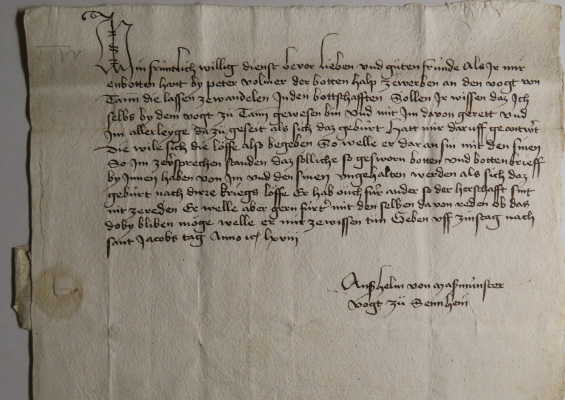 Min früntlich willig dienst bevor lieben und güten fründe Als Jr mir
enbotten hant by peter volmer der botten halp zewerben an den vogt von
Tann die lassen zewandelen Jnden bottschafften Sollen Jr wissen daz Jch
selbs by dem vogt zü Tann gewesen bin Und mit Jm davon gerett Und
Jm allerleyge da zü geseit als sich daz gebürt Hatt mir daruff geantwʼt
Die wile sich die löffe also begeben So welle er dar an sin mit den sinen
So Jm zeversprechen standen daz solliche so gesworn botten und bottenbrieff
by Jnnen haben von Jm und den sinen ungehalten werden als sich daz
gebürt nach diser kriegs löffe Er hab ouch für ander so der herschafft sint
nit zereden Er welle aber gern fürtʼ mit den selben davon reden ob das
doby bliben möge welle er mir zewissen tün Geben uff zinstag nach
sant Jacobs tag Anno lxviii
Anshelm von Maßmünster
vogt zü Sennhein